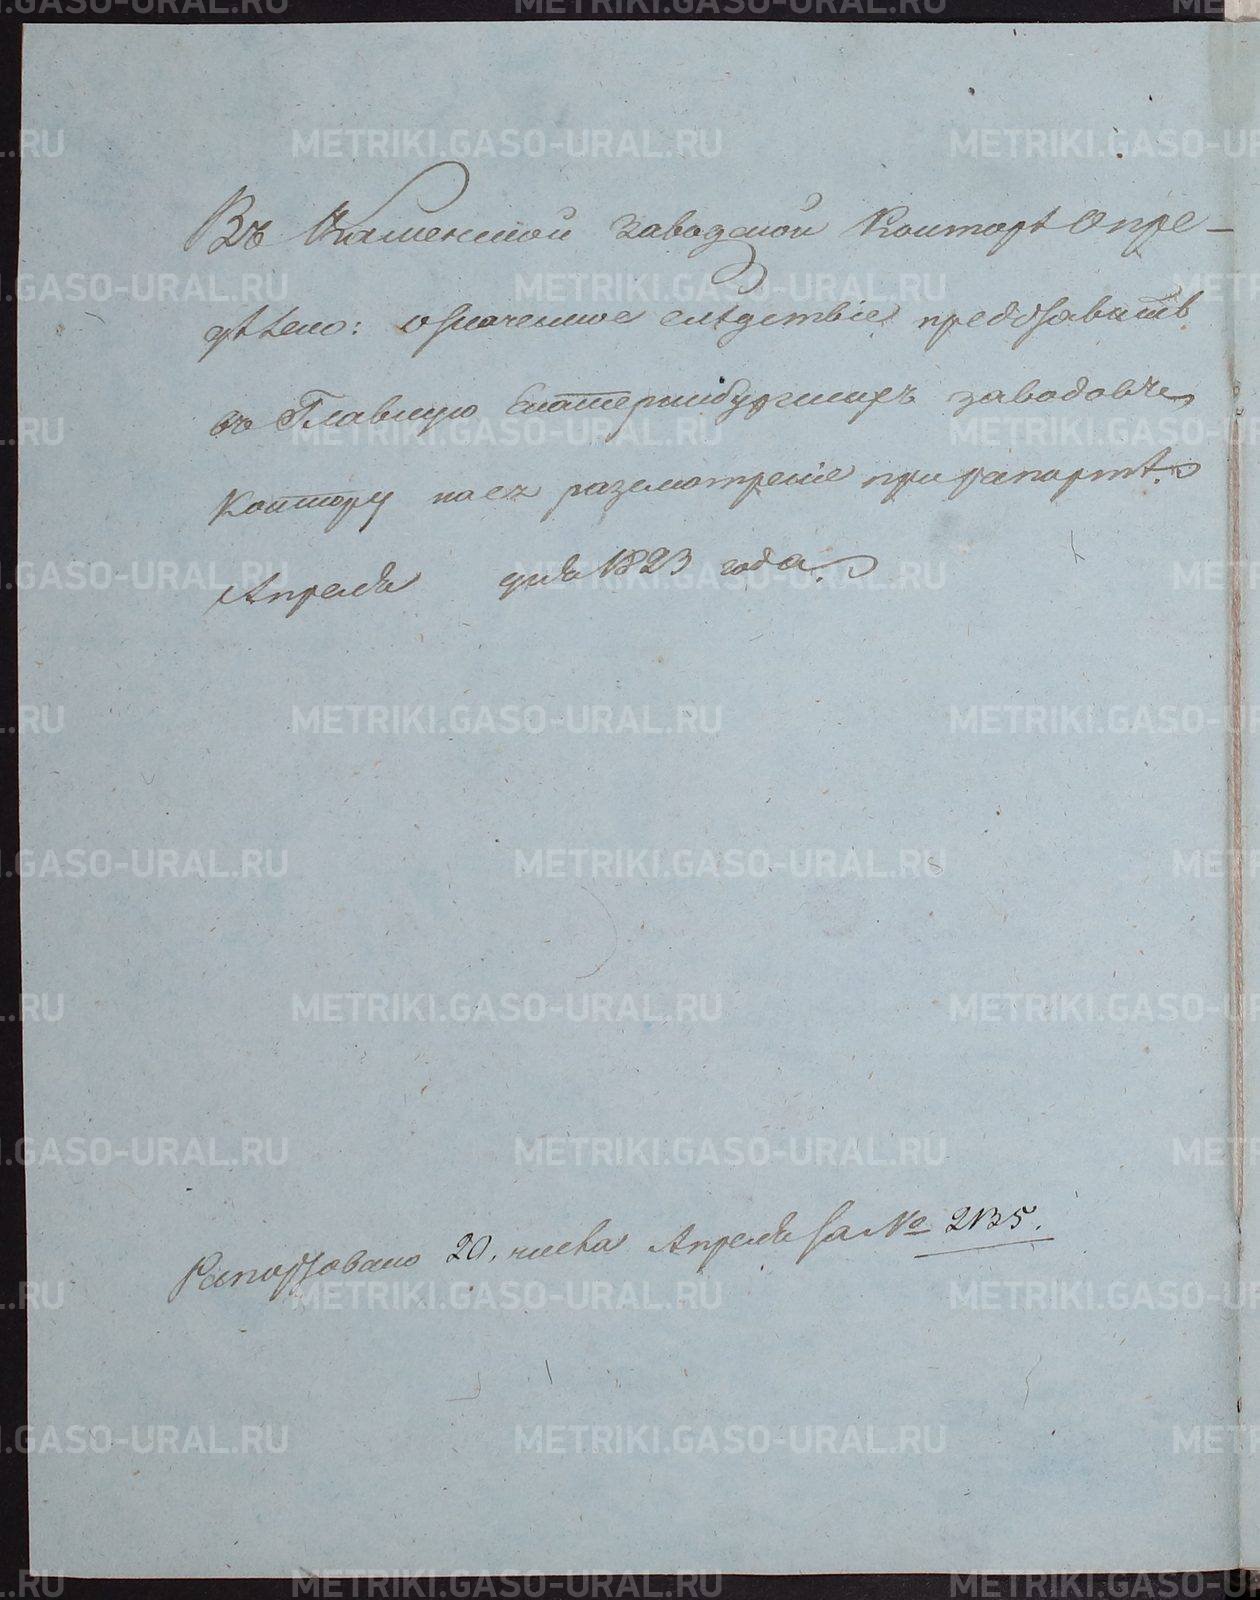 Въ Каменской Заводской Конторѣ Опре-
дѣлено: означенное слѣдствіе представить
въ Главную Екатеринбургскихъ заводовъ
Контору на ея разсмотреніе при рапортѣ.
Апреля дня 1823 года.
Рапортовано 20. числа Апреля за № 2135.